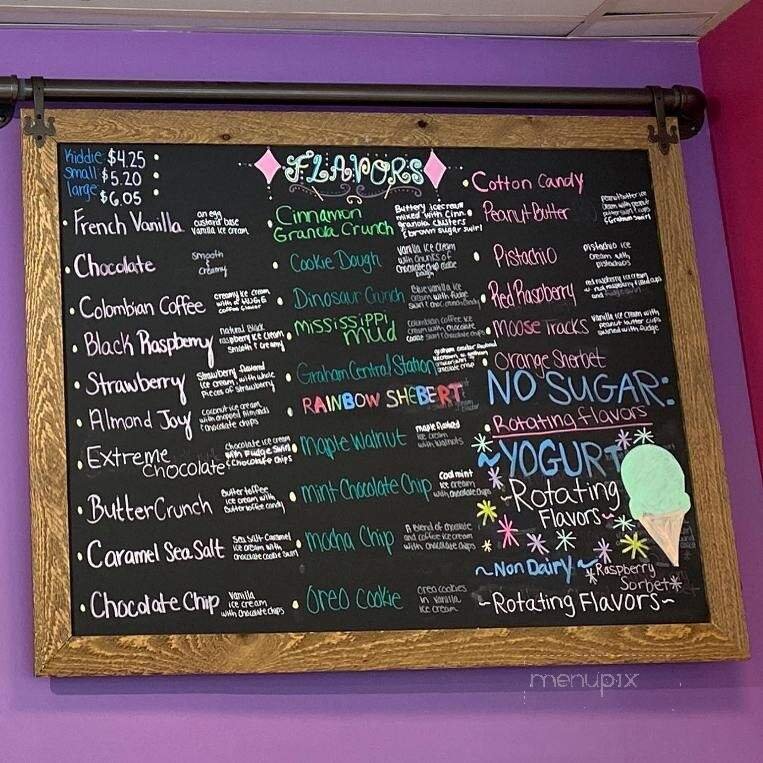 Kiddie $4.25
small $5.20
large $6.05
FLAVORS
French Vanilla
an egg
custard base
vanilla ice cream
Chocolate
smooth
&
creamy
Colombian Coffee
creamy ice cream
with a HUGE
coffee flavor
Black Raspberry
natural black
raspberry ice cream
smooth & creamy
Strawberry
Strawberry flavored
ice cream, with whole
pieces of strawberry
Almond Joy
coconut ice cream
with chopped almonds
& chocolate chips
Extreme
Chocolate
chocolate ice cream
with fudge swirl
& chocolate chips
Butter Crunch
butter toffee
ice cream with
buttertoffee candy
Caramel Sea Salt
Sea Salt Caramel
ice cream with
chocolate cookie swirl
Chocolate Chip
vanilla
ice cream
with chocolate chips
Cinnamon
Granola Crunch
Buttery icecream
mixed with Cinn.
granola clusters
& brown sugar swirl
Cookie Dough
vanilla ice cream
with chunks of
chocolate chip cookie
dough
Dinosaur Crunch
blue vanilla ice
cream with fudge
swirl & choc. crunch candy
MISSISSIPPI
mud
coffee ice
cream with chocolate
cookie swirl & chocolate chips
Graham Central Station
RAINBOW SHEBERT
maple walnut
maple flavored
ice cream
with walnuts
mint Chocolate Chip
cool mint
ice cream
with chocolate chips
mocha Chip
A blend of chocolate
and coffee ice cream
with chocolate chips
Oreo Cookie
oreo cookies
in vanilla
ice cream
Cotton Candy
Peanut Butter
peanutbutter ice
cream with peanut
butter
& Graham swirl
Pistachio
pistachio ice
cream with
pistachios
Red Raspberry
red raspberry ice cream
w/ red raspberry filled cups
and fudge swirl
Moose Tracks
vanilla ice cream with
peanut butter cups
swirled with fudge
Orange Sherbet
NO SUGAR:
Rotating flavors
~YOGURT
~Rotating
Flavors~
~Non Dairy~
*Raspberry
Sorbet*
~Rotating Flavors~
menupix